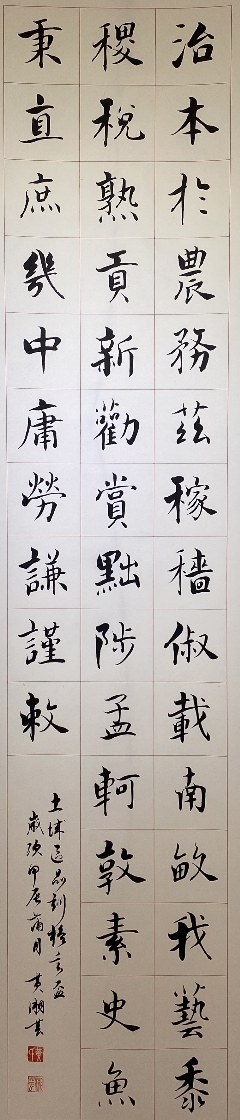 治本於農務茲稼穡俶載南畝我藝黍
稷稅熟貢新勸賞黜陟孟軻敦素史魚
秉直庶幾中庸勞謙謹敕
土城區
歲次甲辰 月 黃